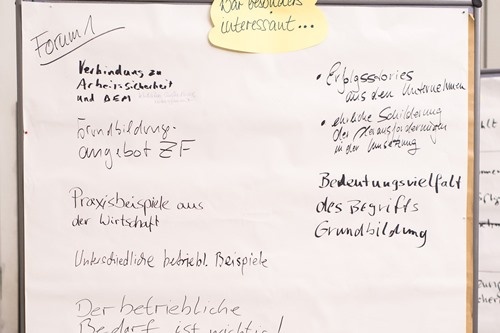 War besonders
interessant...
Forum 1
Verbindung zu
Arbeitssicherheit
und DEM
Grundbildungs-
angebot ZF
Praxisbeispiele aus
der Wirtschaft
Unterschiedliche betriebl. Beispiele
Der betriebliche
Bedarf ist wichtig!
• Erfolgsstories
aus den Unternehmen
• ehrliche Schilderung
der Herausforderungen
in der Umsetzung
Bedeutungsvielfalt
des Begriffs
Grundbildung